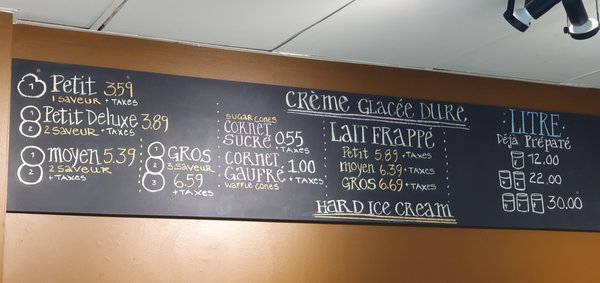 1 Petit 3.59
1 SAVEUR + TAXES
1 Petit Deluxe 3.89
2 2 SAVEUR + TAXES
1 moyen 5.39
2 2 SAVEUR
+ TAXES
1 GROS
2 3 SAVEUR
3 6.59
+ TAXES
SUGAR CONES
CORNET
SUCRÉ 0.55
TAXES
CORNET
GAUFRE 1.00
TAXES
WAFFLE CONES
CRÈME GLACÉE DURE
LAIT FRAPPÉ
Petit 5.89 + TAXES
moyen 6.39 + TAXES
GROS 6.69 + TAXES
HARD ICE CREAM
LITRE
Déjà Préparé
12.00
22.00
30.00